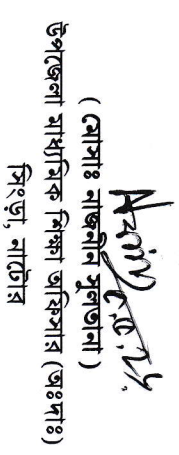 ( মোসাঃ নাজনীন সুলতানা )
উপজেলা মাধ্যমিক শিক্ষা অফিসার (অঃদাঃ)
সিংড়া, নাটোর